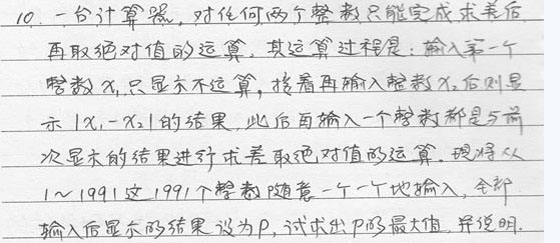 10. 一台计算器，对任何两个整数只能完成求差后
再取绝对值的运算，其运算过程是：输入第一个
整数x₁只显示不运算，接着再输入整数x₂后则显
示|x₁-x₂|的结果，此后再输入一个整数都是与前
次显示的结果进行求差取绝对值的运算．现将从
1～1991这1991个整数随意一个一个地输入，全部
输入后显示的结果设为P，试求出P的最大值，并说明．